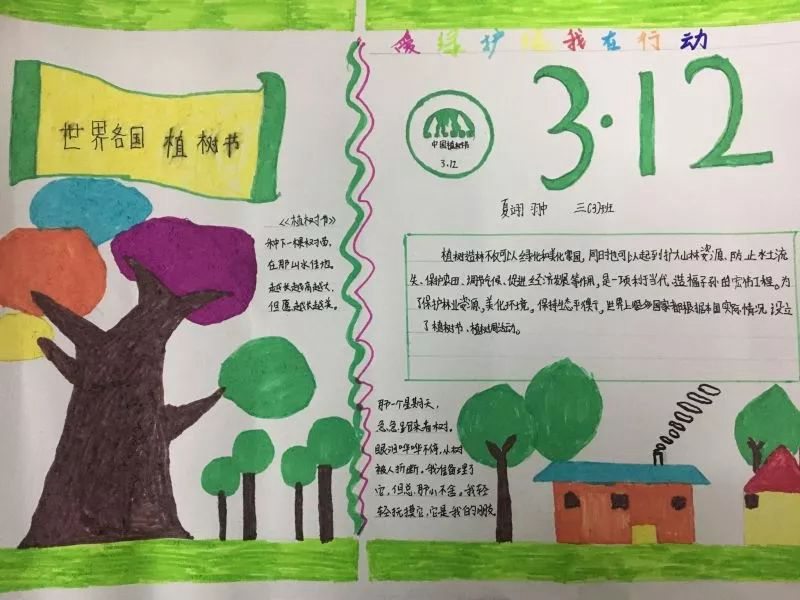 世界各国 植树节
《植树节》
种下一棵树苗,
在那山水佳地。
越长越高越大,
但愿越长越美。
爱绿护绿我在行动
3·12
中国植树节
3.12
夏翊翀 三(3)班
植树造林不仅可以绿化和美化家园,同时也可以起到扩大山林资源、防止水土流
失、保护农田、调节气候、促进经济发展等作用,是一项利于当代、造福子孙的宏伟工程。为
了保护林业资源,美化环境,保持生态平衡,世界上很多国家都根据本国实际情况,设立
了植树节、植树周活动。
那一个星期天,
急急冒回来看树。
眼泪哗哗不停,小树
被人折断。我准备埋了
它,但总那么不舍。我轻
轻抚摸它,它是我的朋友